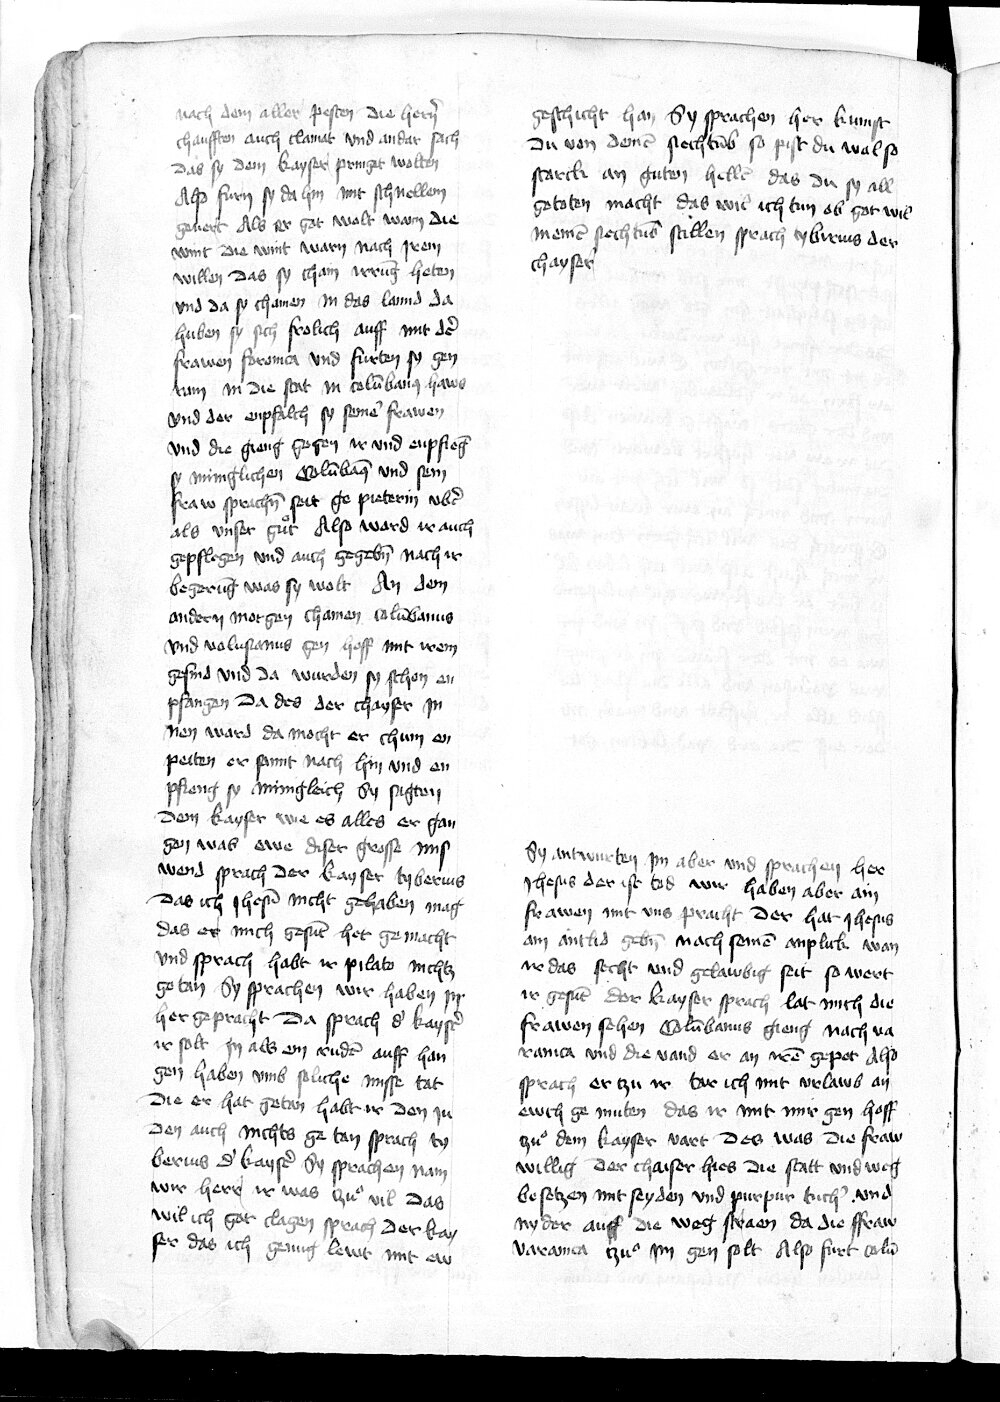 nach dem aller pesten die hern̄
chaufften auch clainat vnd andar sach
das sy dem kayser pringet wolten
Also furn sy da hin mit schnellem
geuert Als er got wolt warn die
wint die wint warn nach jrem
willen das sy chain irrūg heten
vnd da sy chamen in das lannd da
huben sy sich frolich auff mit d̄
frawen feronica vnd furten sy gen
rom in die stat in colūbanꝯ haws
vnd der enpfalch sy seinē frawen
vnd die gieng gegen ir vnd enpfieg̅
sy minigklichen Colūbaꝯ vnd sein
fraw sprachn̄ seit ge pieterin vb̄
als vnser gůt Also ward ir auch
gepflegen vnd auch gegebn̄ nach ir
begerūg was sy wolt An dem
andern morgen chamen colūbanus
vnd volusianus gen hoff mit irem
gesind vnd da wurden sy schon en
pfangen Da des der chayser jn
nen ward da mocht er chum en
peiten er sannt nach hin vnd en
pfieng sy minigleich Sy sagten
dem kayser wie es alles er gan
gen was ewe diser grosse mis
wend sprach der kayser tyberius
das ich jhesū nicht gehaben mag
das er mich gesūt het gemacht
vnd sprach habt ir pilato nichtz
getan Sy sprachen wir haben jn
her gepracht Da sprach d̄ kayser
ir solt jn als ein rudē auff han
gen haben vmb soliche misse tat
die er hat getan habt ir den ju
den auch nichts ge tan sprach ty
berius d̄ kayser Sy sprachen nain
wir herr ir was tzuͦ vil das
wil ich got clagen sprach der kay
ser das ich genug lewt mit ew
geschicht han Sy sprachen her kumst
du von deinē siechtūb so pist du wol so
starck an guten hellē das du sy all
getoten macht das wil ich tun ob got wil
meinē siechtūb stillen sprach tyberius der
chayser
Sy antwurten jm aber vnd sprachen her
jhesus der ist tod wir haben aber ain
frawen mit vns pracht der hat jhesus
ain antlid gebn̄ nach seinē anplick wan
ir das secht vnd gelawbig seit so wert
ir gesūt der kayser sprach lat mich die
frawen sehen Colūbanus gieng nach va
ranica vnd die vand er an irē gepet Also
sprach er tzu ir tar ich mit vrlawb an
ewch ge muten das ir mit mir gen hoff
tzuͦ dem kayser vart Des was die fraw
willig Der chaiser hies die statt vnd weg
besetzen mit seyden vnd purpur tuch vnd
nyder auff die weg straen da die ffraw
varonica tzuͦ im gen solt Also furt colū